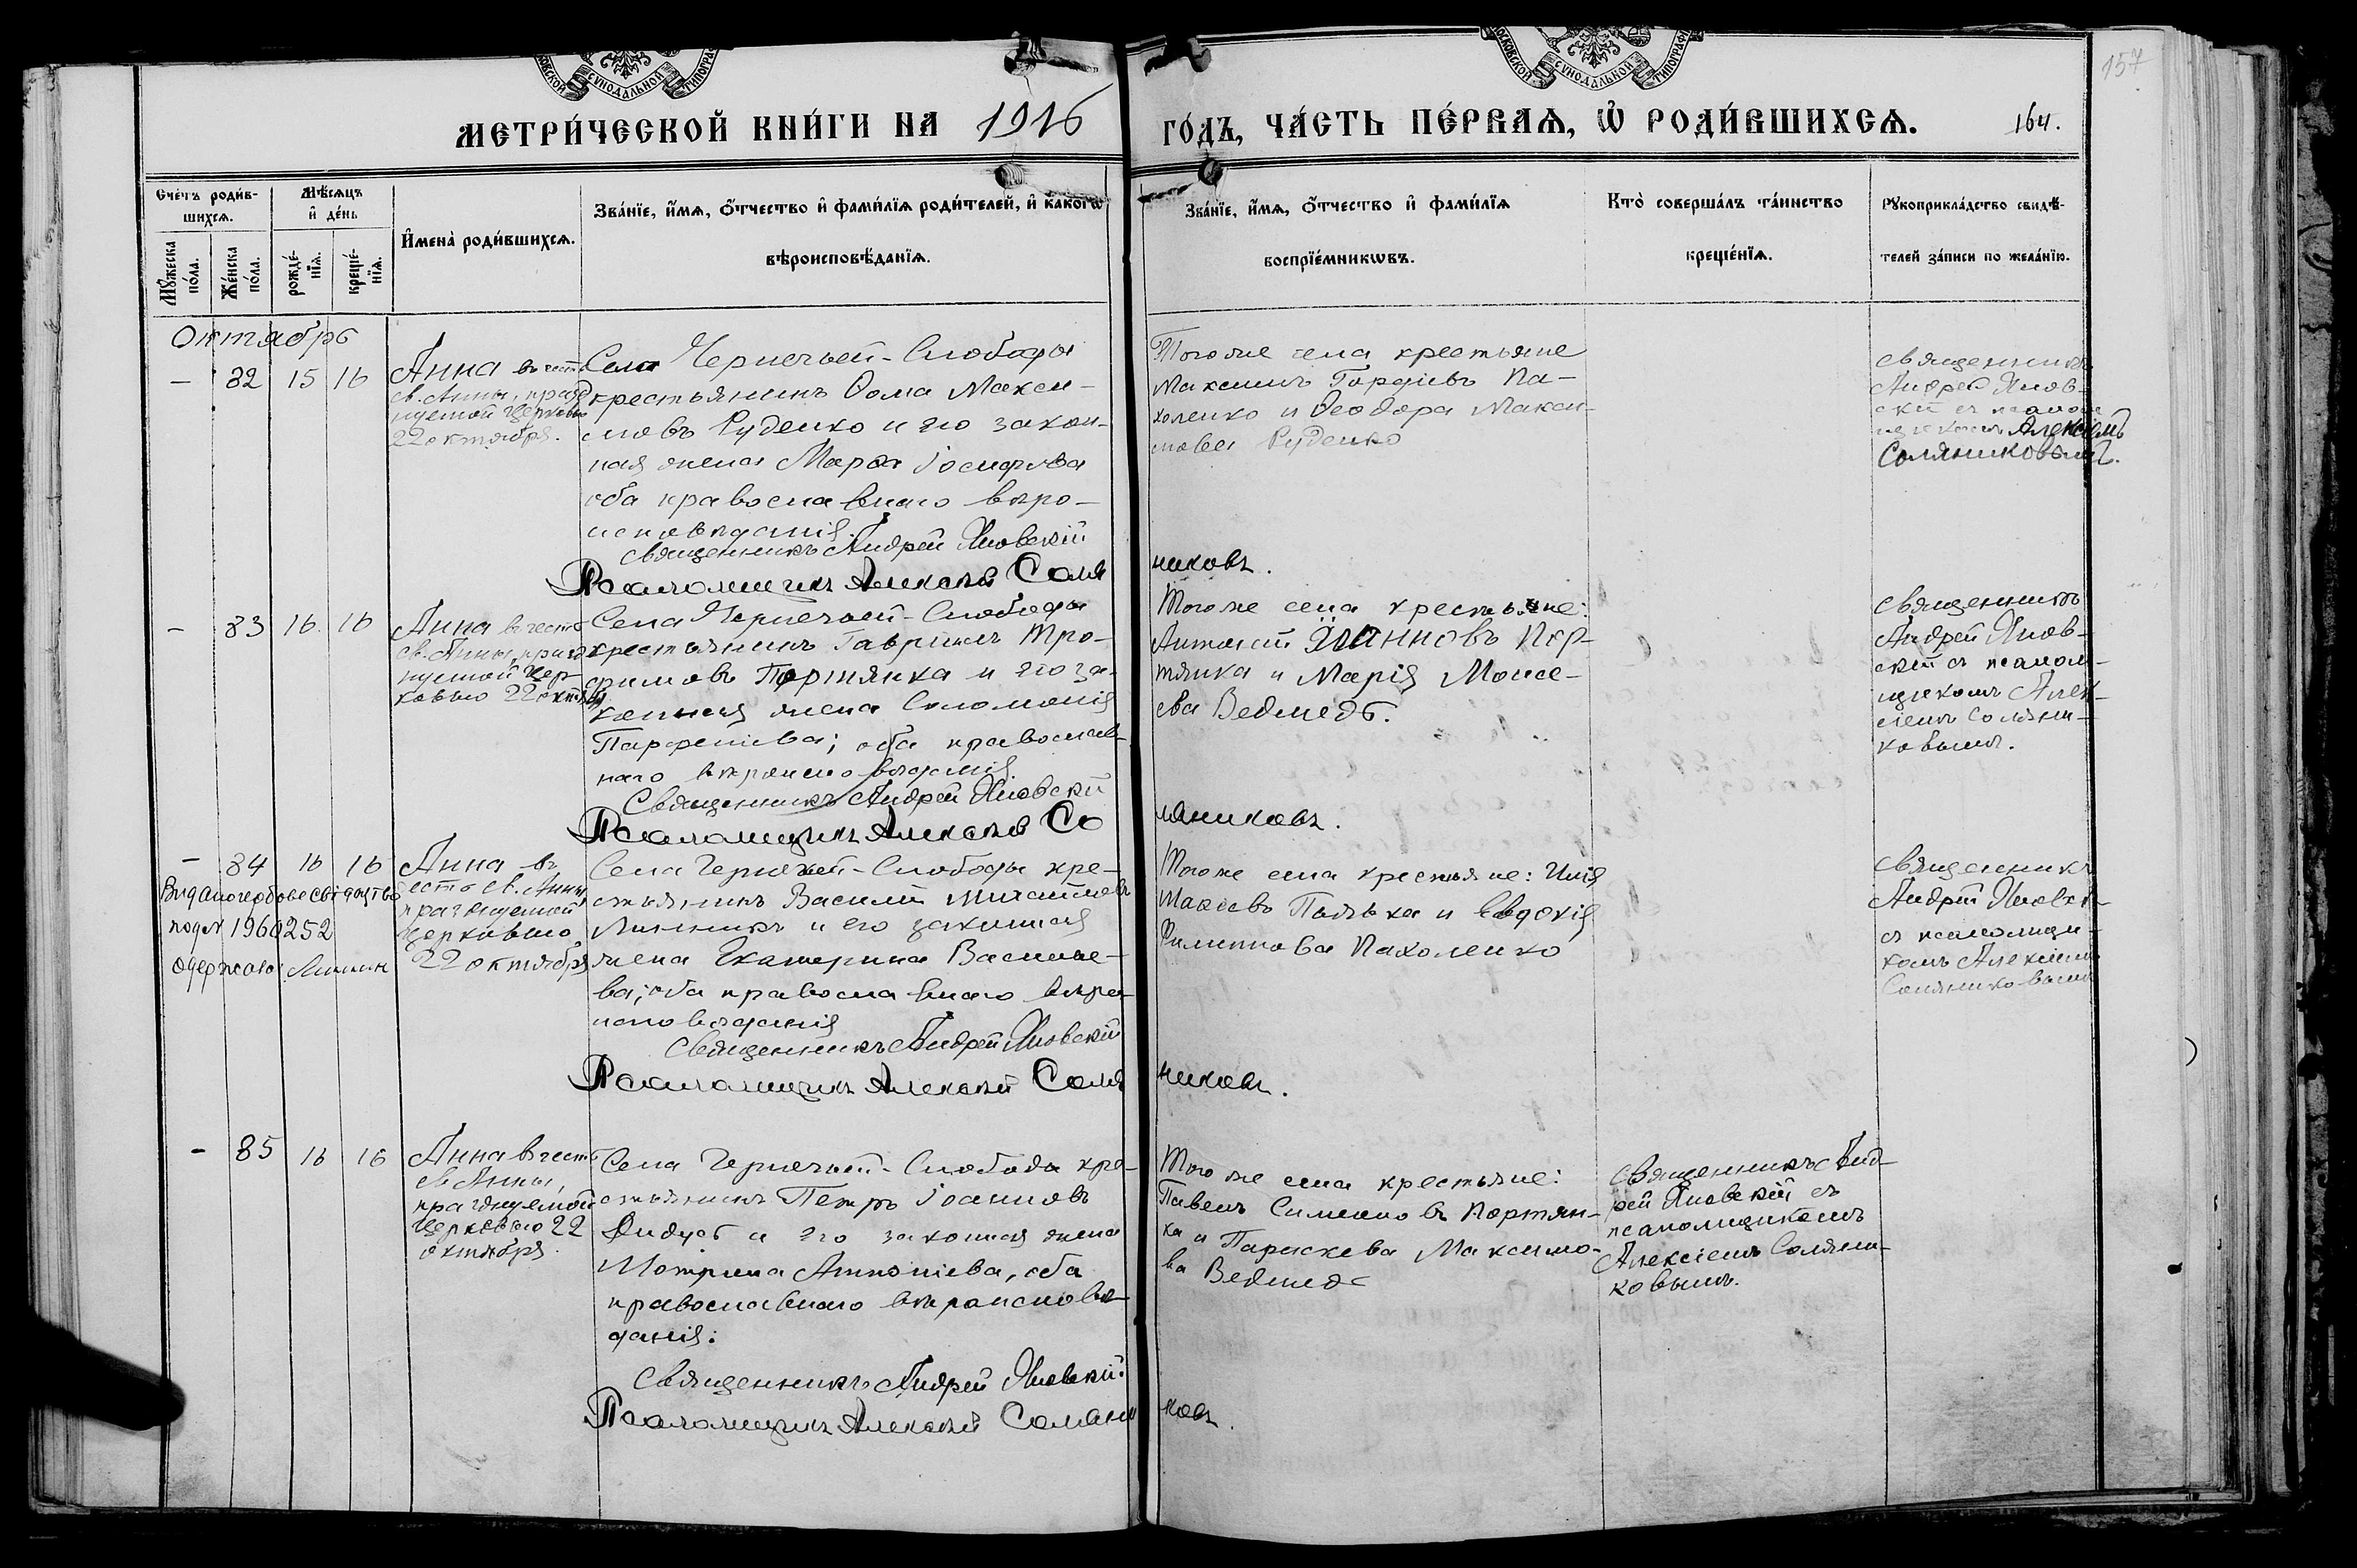 МОСКОВСКОЙ СУНОДАЛЬНОЙ ТИПОГРАФІИ
МОСКОВСКОЙ СУНОДАЛЬНОЙ ТИПОГРАФІИ
157
МЕТРИ́ЧЕСКОЙ КНИ́ГИ НА 1916
ГО́ДЪ, ЧА́СТЬ ПЕ́РВАѦ, Ѡ҆ РОДИ́ВШИХСѦ.
164.
Сче́тъ роди́в-
шихсѧ.
Мꙋ́жеска
по́ла.
Же́нска
по́ла.
Мѣ́сѧцъ
и҆ де́нь
рожде́-
нїѧ.
креще́-
нїѧ.
И҆мена̀ роди́вшихсѧ.
Зва́нїе, и҆́мѧ, ѻ҆́тчество и҆ фами́лїѧ роди́телей, и҆ како́гѡ
вѣроисповѣ́данїѧ.
Зва́нїе, и҆́мѧ, ѻ҆́тчество и҆ фами́лїѧ
воспрїе́мникѡвъ.
Кто̀ соверша́лъ та́инство
креще́нїѧ.
Рꙋкоприкла́дство свидѣ́-
телей за́писи по жела́нїю.
Октябрь
—
82
15
16
Анна въ честь
св. Анны, празд
нуемой Церковью
22 октября.
Села Чернечьей-Слободы
крестьянинъ Ѳома Макси-
мовъ Руденко и его закон-
ная жена Марѳа Іосифова
оба православнаго вѣро-
исповѣданія.
Священникъ Андрей Яновскій
Псаломщикъ Алексѣй Соля
никовъ.
Того же села крестьяне
Максимъ Гордіевъ Па-
холенко и Ѳеодора Макси-
мова Руденко
Священникъ
Андрей Янов-
скій съ псалом
щикомъ Алексіемъ
Соляниковымъ.
—
83
16.
16
Анна въ честь
св. Анны, празд
нуемой Цер-
ковью 22 октябр
Села Чернечьей-Слободы
крестьянинъ Гавріилъ Тро-
фимовъ Портянка и его за-
конная жена Соломонія
Парфеніева; оба православ-
наго вѣроисповѣданія
Священникъ Андрей Яновскій
Псаломщикъ Алексѣй Со
ляниковъ.
Того же села крестьяне:
Антоній Іоанновъ Пор-
тянка и Марія Моисе-
ева Ведмедь.
Священникъ
Андрей Янов-
скій съ псалом-
щикомъ Алек-
сіемъ Соляни-
ковымъ.
—
84
16
16
Видано
под № 252
одержала
Анна въ
честь св. Анны
празднуемой
церковью
22 октября
Села Чернечьей-Слободы кре-
стьянинъ Василій Михайловъ
Линникъ и его законная
жена Екатерина Василье-
ва; оба православнаго вѣро-
исповѣданія
Священникъ Андрей Яновскій
Псаломщикъ Алексѣй Соля
никовъ.
Того же села крестьяне: Илія
Іаковъ и Евдокія
Филиппова Пахоленко
Священникъ
Андрей Яновскі
съ псаломщи-
комъ Алексіемъ
Соляниковымъ
—
85
16
16
Анна въ честь
св Анны,
празднуемой
Церковью 22
октября.
Села Чернечьей-Слободы кре-
стьянинъ Петръ Іоанновъ
Дидусь и его законная жена
Мотрина Антоніева, оба
православнаго вѣроисповѣ-
данія:
Священникъ Андрей Яновскій.
Псаломщикъ Алексѣй Соляни
ковъ.
Того же села крестьяне:
Павелъ Симеоновъ Портян-
ка и Параскева Максимо-
ва Ведмедь
Священникъ Анд-
рей Яновскій съ
псаломщикомъ
Алексіемъ Соляни-
ковымъ.